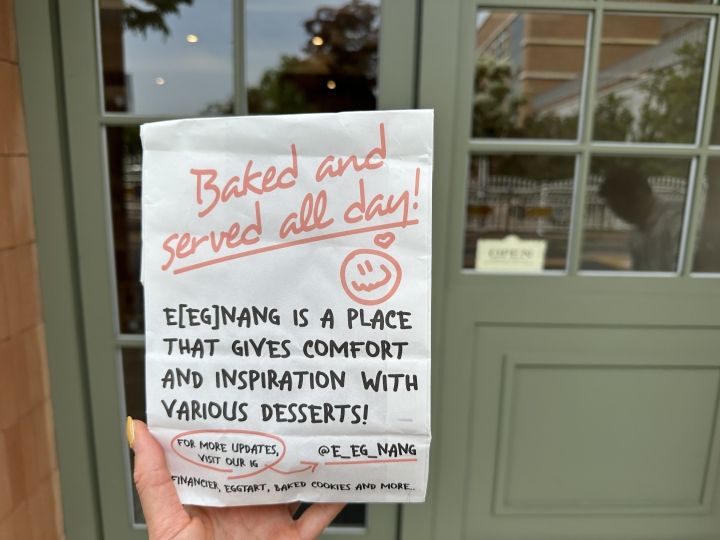 Baked and
served all day!
E[EG]NANG IS A PLACE
THAT GIVES COMFORT
AND INSPIRATION WITH
VARIOUS DESSERTS!
FOR MORE UPDATES,
VISIT OUR IG
@E_EG_NANG
FINANCIER, EGGTART, BAKED COOKIES AND MORE..
OPEN